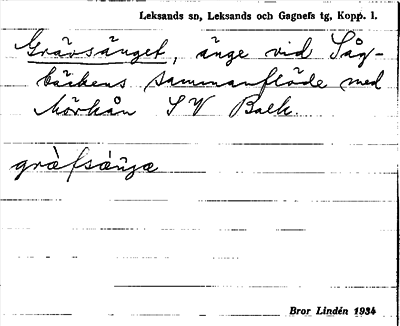 Leksands sn, Leksands och Gagnefs tg, Kopp. l.
Grävsänget, änge vid Såg-
bäckens sammanflöde med
Mörkån S V Balk
gràfsä̀ŋgæ
Bror Lindén 1934